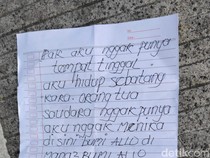 pak aku nggak punya
tempat tinggal
aku hidup sebatang
kara orang tua
saudara nggak punya
aku nggak
disini bumi ALLO di
bumi ALLO
detikcom